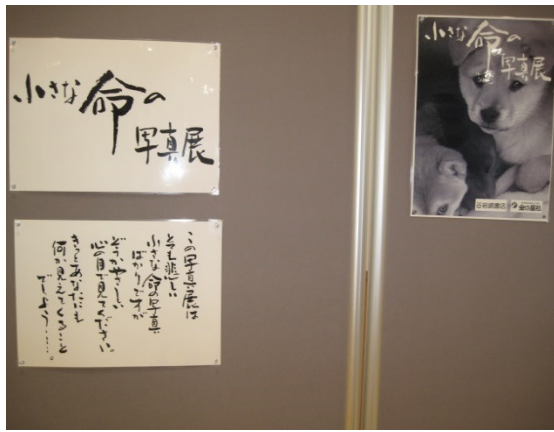 小さな命の
写真展
この写真展は
とても悲しい
小さな命の写真
ばかりですが
どうかやさしい
心の目で見てください
きっとあなたにも
何か見えてくること
でしょう……
小さな命の
写真展